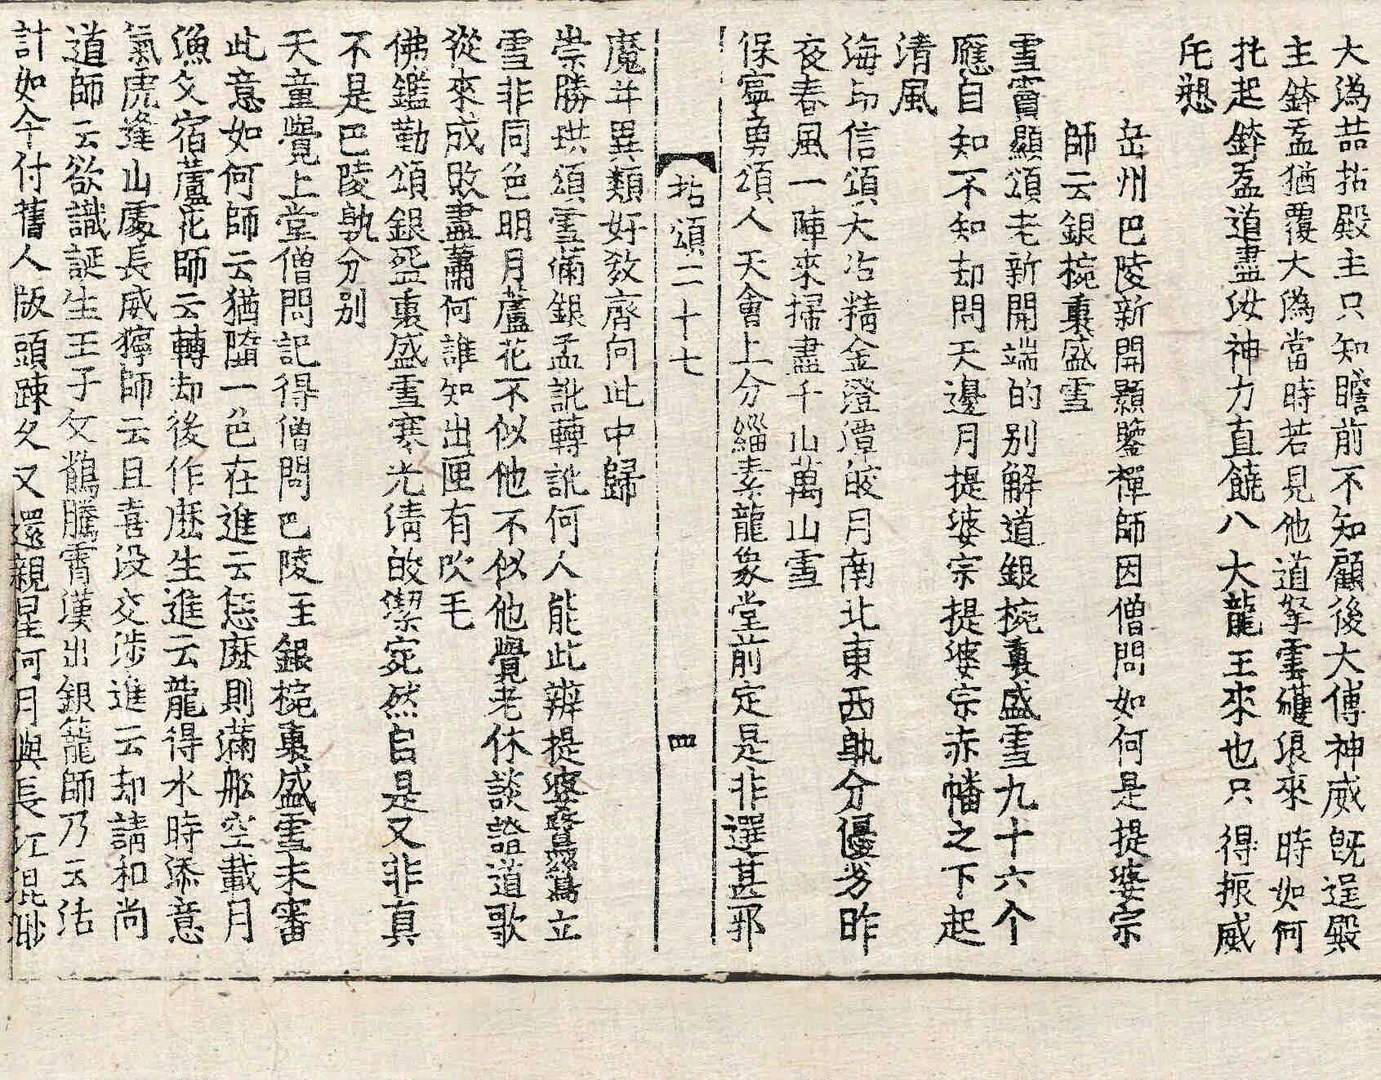 大潙喆拈殿主只知瞻前不知顧後大傅神威旣逞殿
主鉢盂猶覆大潙當時若見他道拏雲㩴浪來時如何
托起鉢盂道盡汝神力直饒八大龍王來也只得振威
乇㦬
岳州巴陵新開顥鑒禪師因僧問如何是提婆宗
師云銀椀裏盛雪
雪竇顯頌老新開端的別解道銀椀裏盛雪九十六个
應自知不知却問天邊月提婆宗提婆宗赤幡之下起
清風
海印信頌大冶精金澄潭皎月南北東西孰分優劣昨
夜春風一陣來掃盡千山萬山雪
保寧勇頌人天會上分緇素龍象堂前定是非選甚邪
拈頌二十七 四
魔并異類好敎齊向此中歸
崇勝珙頌雪滿銀盂訛轉訛何人能此辨提婆鷺鷥立
雪非同色明月蘆花不似他不似他覺老休談證道歌
從來成敗盡蕭何誰知出匣有吹毛
佛鑑勤頌銀盌裏盛雪寒光淸皎潔宛然自是又非真
不是巴陵孰分别
天童覺上堂僧問記得僧問巴陵王銀椀裏盛雪未審
此意如何師云猶墮一色在進云恁麽則滿舩空載月
漁父宿蘆花師云轉却後作麽生進云龍得水時添意
氣虎逢山處長威獰師云且喜没交涉進云却請和尚
道師云欲識誕生王子父鶴騰霄漢出銀籠師乃云活
計如今付舊人版頭踈久又還親星河月與長江混渺